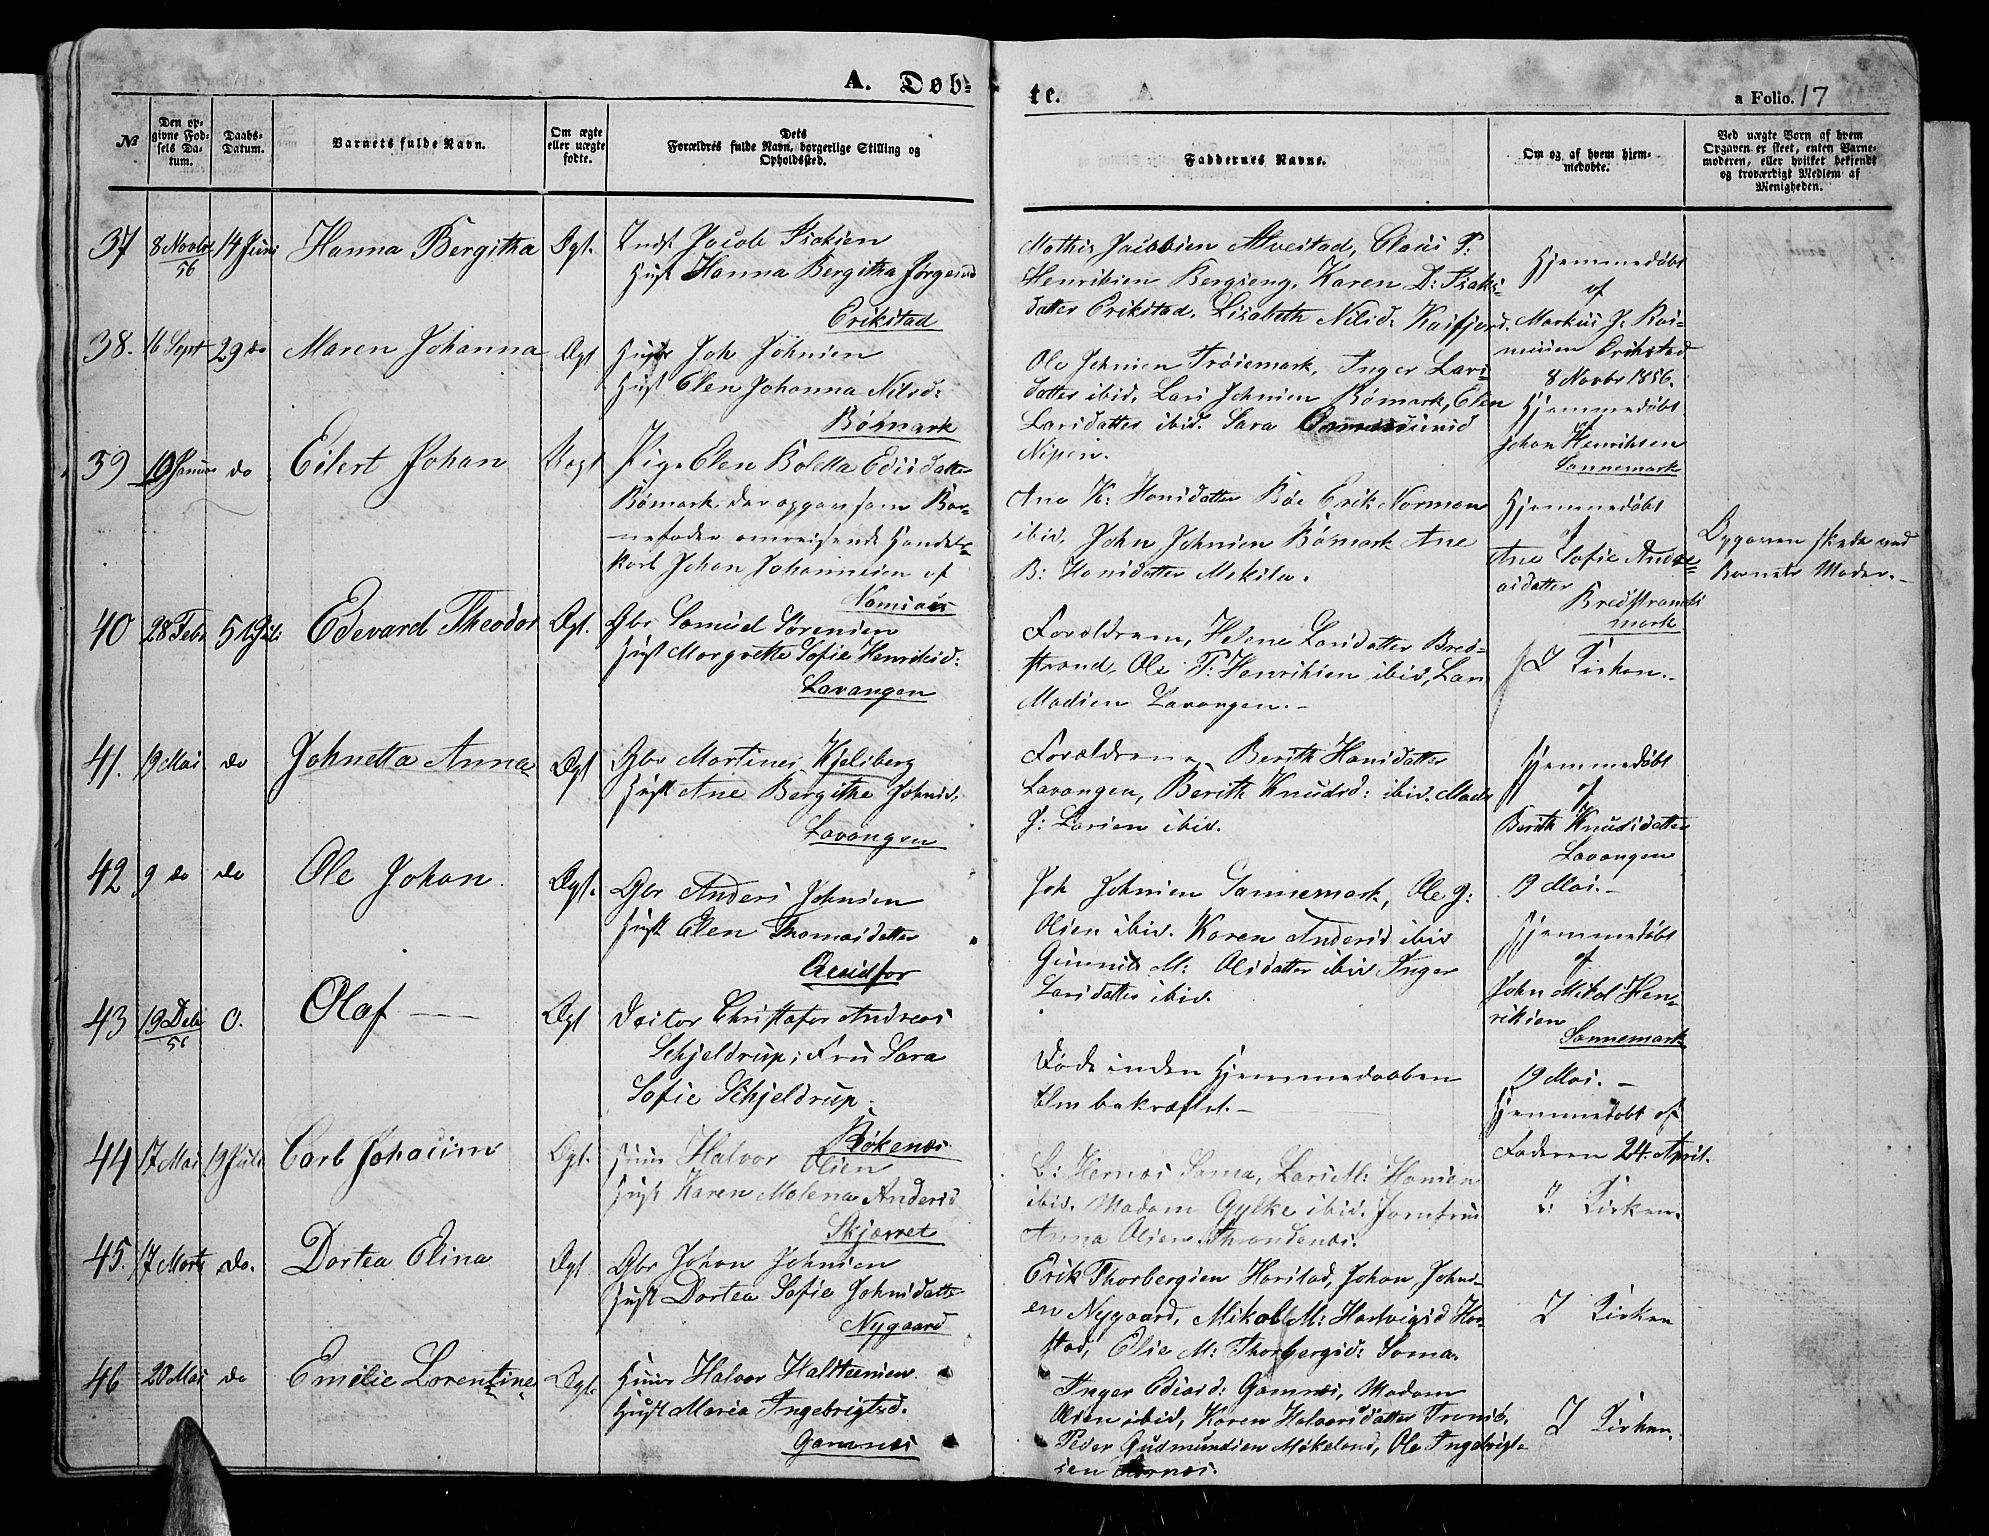 A. Døb-
te.
a Folio. 17
№
Den op-
givne Fød-
sels Da-
tum.
Daabs-
Datum.
Barnets fulde Navn.
Om ægte
eller uægte
fødte.
Dets
Forældres fulde Navn, borgerlige Stilling og
Opholdssted.
Faddernes Navne.
Om og af hvem hjem-
medøbte.
Ved uægte Børn af hvem
Opgaven er skeet, enten Barne-
moderen, eller hvilket bekjendt
og troværdigt Medlem af
Menigheden.
37 8 Novbr 56 14 Juni Hanna Bergitha Ægt. Indst Jacob Isaksen
Hust Hanna Bergitha Jørgensd
Erikstad
Mathis Jacobsen Alvestad, Claus P:
Henriksen Bergseng, Karen D: Isaks-
datter Erikstad, Lisabeth Nilsd: Kasfjord.
Hjemmedøbt
af
Markus J. Ras-
mussen Erikstad
8 Novbr 1856.
38. 16 Sept 29 do Maren Johanna Ægt Joh Johnsen
Hust Elen Johanna Nilsd:
Bømark
Ole Johnsen Trøiemark, Inger Lars-
datter ibid, Lars Johnsen Bømark, Elen
Larsdatter ibid. Sara
Nipen.
Hjemmedøbt
af
Johan Henriksen
Sannemark
39 10 Januar do Eilert Johan Uægt Pige Elen Boletta Edisdatter
Bømark, der opgav som Bar-
nefader omreisende Handels-
karl Johan Johannesen af
Namsos
Ane K: Hansdatter Bøe Erik Norman
ibid, John Johnsen Bømark Ane
B: Hansdatter Mekila.
Hjemmedøbt
af
Ane Sofie Andre-
asdatter
Bredstrands
mark
Opgaven skede ved
Barnets Moder.
40 28 Febr 5 Juli Edevard Theodor Ægt. Gbr Samuel Sørensen
Hust Margrethe Sofie Henriksd:
Lavangen
Forældrene, Helene Larsdatter Bred-
strand, Ole P: Henriksen ibid, Lars
Madsen Lavangen.
I Kirken.
41. 19 Mai do Johnetta Anna Ægt Gbr Martines Kjelsberg
Hust Ane Bergithe Johnsd.
Lavangen
Forældrene, Berith Hansdatter
Lavangen, Berith Knudsd: ibid. Mads
J: Larsen ibid.
Hjemmedøbt
af
Berith Knudsdatter
Lavangen
19 Mai.
42 9 do do Ole Johan Ægt. Gbr Anders Johnsen
Hust Elen Thomasdatter
Qvidfor
Joh Johnsen Sannemark, Ole J:
Olsen ibid. Karen Andersd ibid
M: Olsdatter ibid Inger
Larsdatter ibid.
Hjemmedøbt
af
John Mikal Hen-
riksen
Sannemark
19 Mai.
43 19 Debr 56 0. Olaf Ægt Doctor Christofer Andreas
Schjeldrup; Fru Sara
Sofie Schjeldrup.
Røkenæs
Døde inden Hjemmedaaben
blev bekræftet.
Hjemmedøbt af
Faderen 24. April.
44 17 Mai 19 Juli Carl Johacim Ægt. Huus Halvor Olsen
Hust Karen Malena Andersd
Skjærret
L: Hernæs Sama, Lars M: Hansen
ibid. Madam Gylke ibid. Jomfru
Anna Olsen, Throndenæs.
I Kirken.
45. 17 Marts do. Dortea Elina Ægt Gbr Johan Johnsen
Hust Dortea Sofie Johnsdatter
Nygaard
Erik Thorbergsen Harstad, Johan Johns-
en Nygaard, Mikal M: Hartvigsd Har-
stad, Elie M: Thorbergsd: Sama.
I Kirken
46 20 Mai do Emilie Lorentine Ægt. Huus Halvor Halsteensen
Hust Maria Ingebrigtsd.
Gamnæs
Inger Edisd: Gamnæs, Madam
Olsen ibid, Karen Halvorsdatter Tromsø,
Peder Gudmundsen Møkeland, Ole Ingebrigt-
sen
I Kirken.